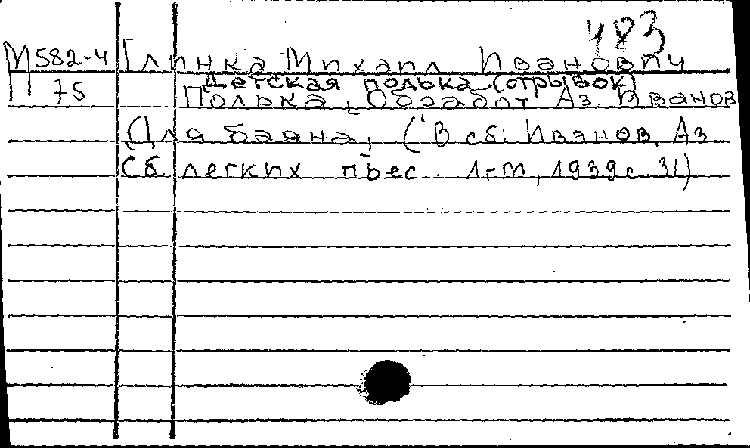 483
М582-4 Глинка Михаил Иванович
Детская полька (отрывок)
П 75 Полька. Обработ Аз. Иванов
Для баяна. (В сб: Иванов Аз.
Сб легких пьес 1-М, 1939 с 31)